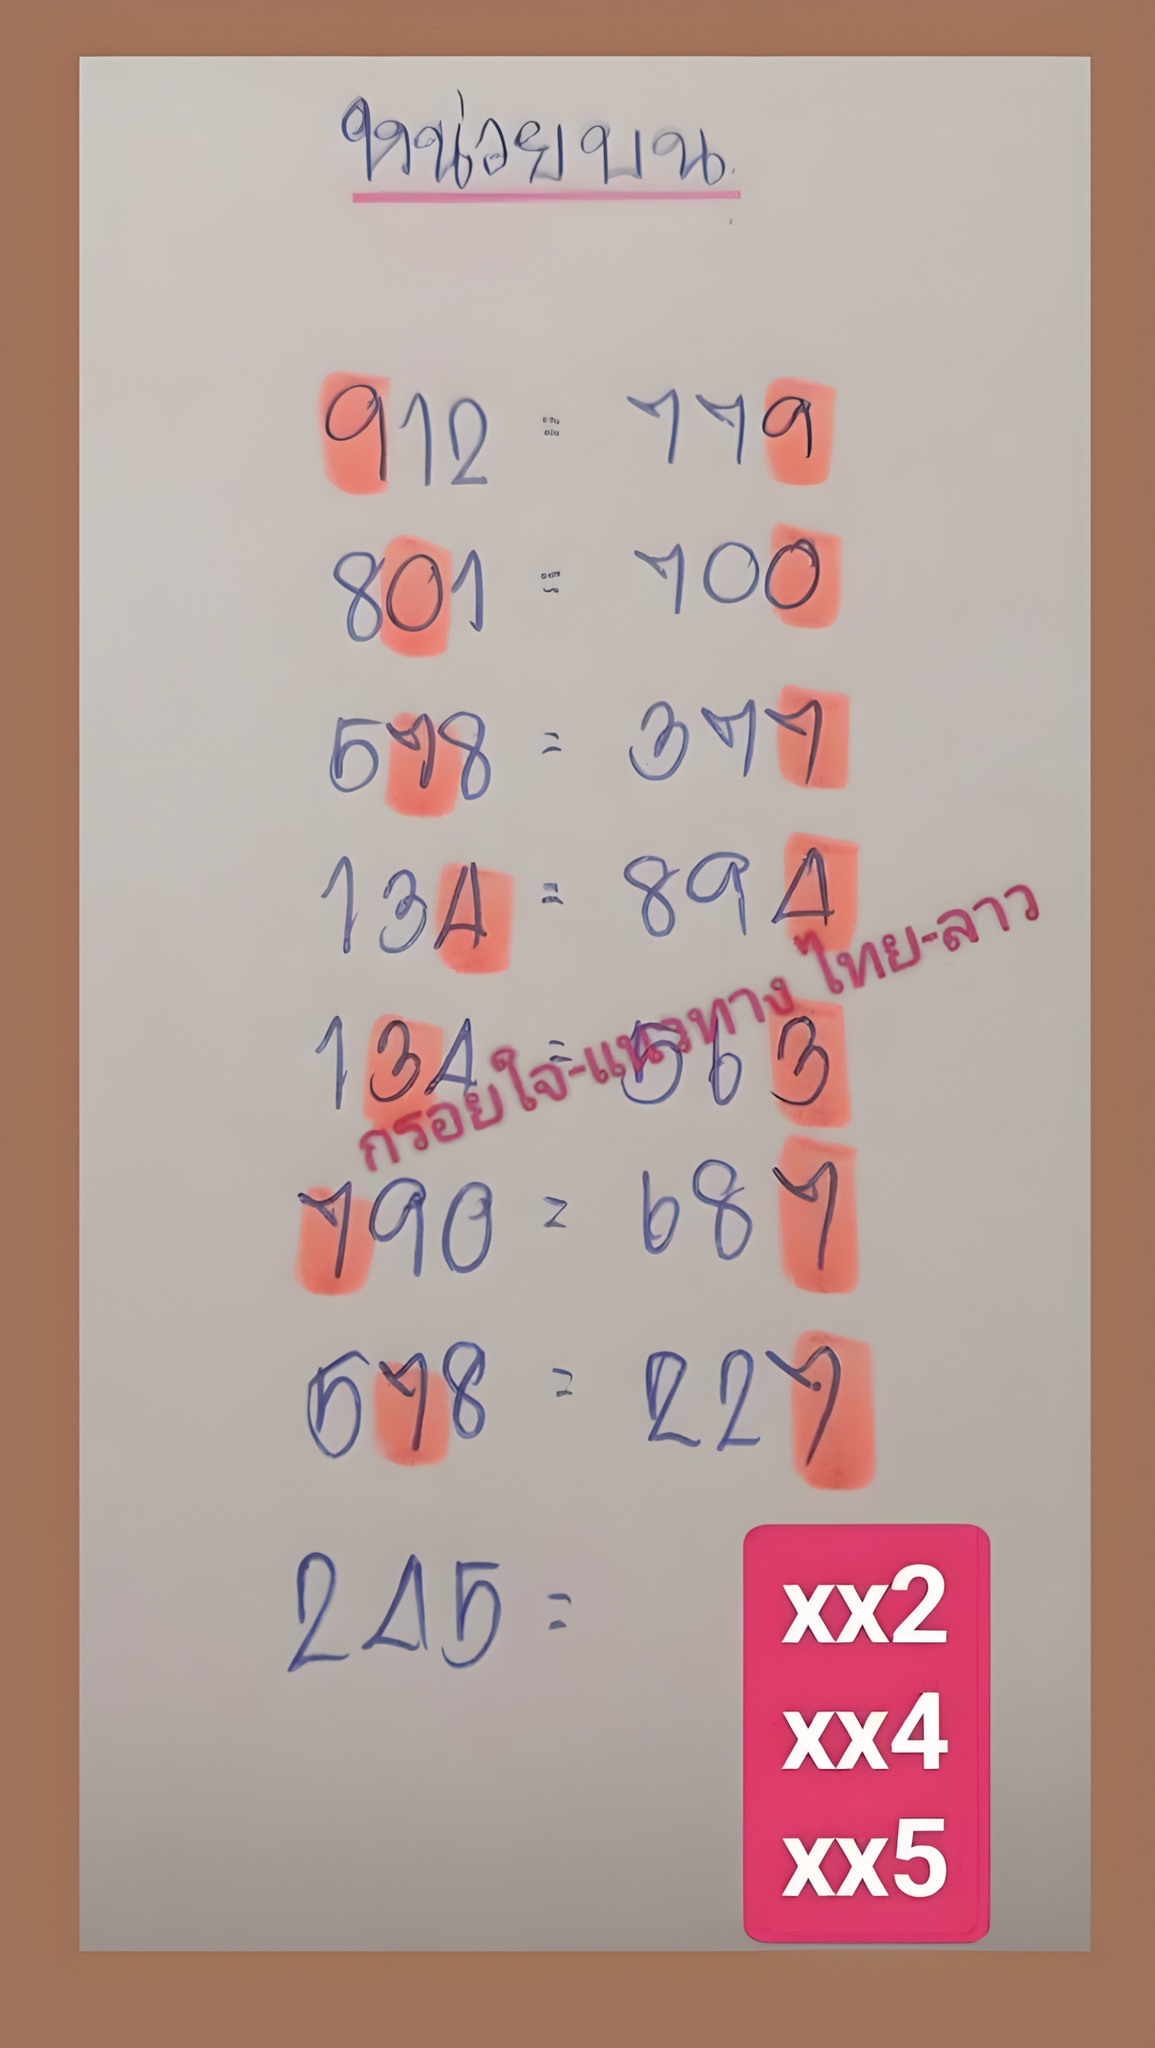 หน่วยบน
912 = 779
801 = 700
578 = 377
134 = 894
134 = 563
790 = 687
578 = 227
245 =
กรอยใจ-แนวทาง ไทย-ลาว
xx2
xx4
xx5